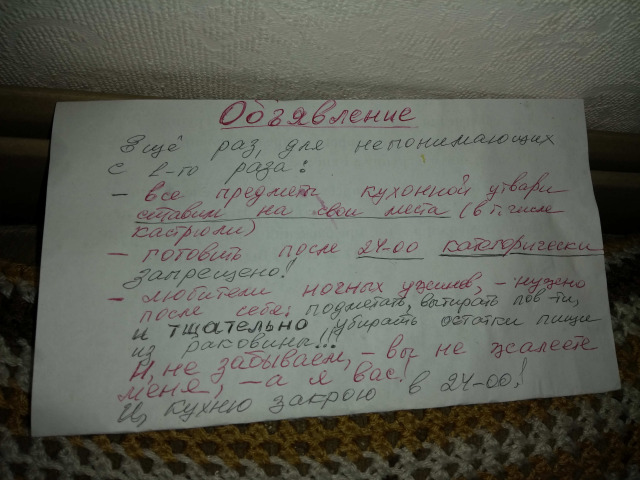 Объявление
Ещё раз, для непонимающих
с 1-го раза:
– все предметы кухонной утвари
ставим на свои места (в т. числе
кастрюли)
– готовить после 24-00 категорически
запрещено!
– любители ночных ужинов, – нужно
после себя: подметать, вытирать пов-ти,
и тщательно убирать остатки пищи
из раковины!!!
И, не забываем, – вы не жалеете
меня, – а я вас!
И, кухню закрою в 24-00!